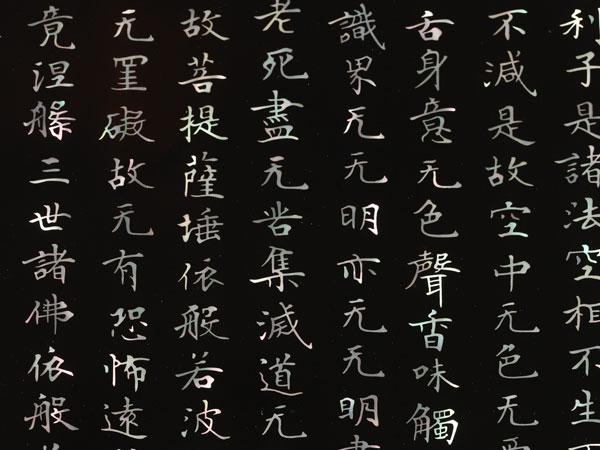 利子是諸法空相不生
不減是故空中无色无受
舌身意无色聲香味觸
識界无无明亦无无明盡
老死盡无苦集滅道无
故菩提薩埵依般若波
无罣礙故无有恐怖遠
竟涅槃三世諸佛依般